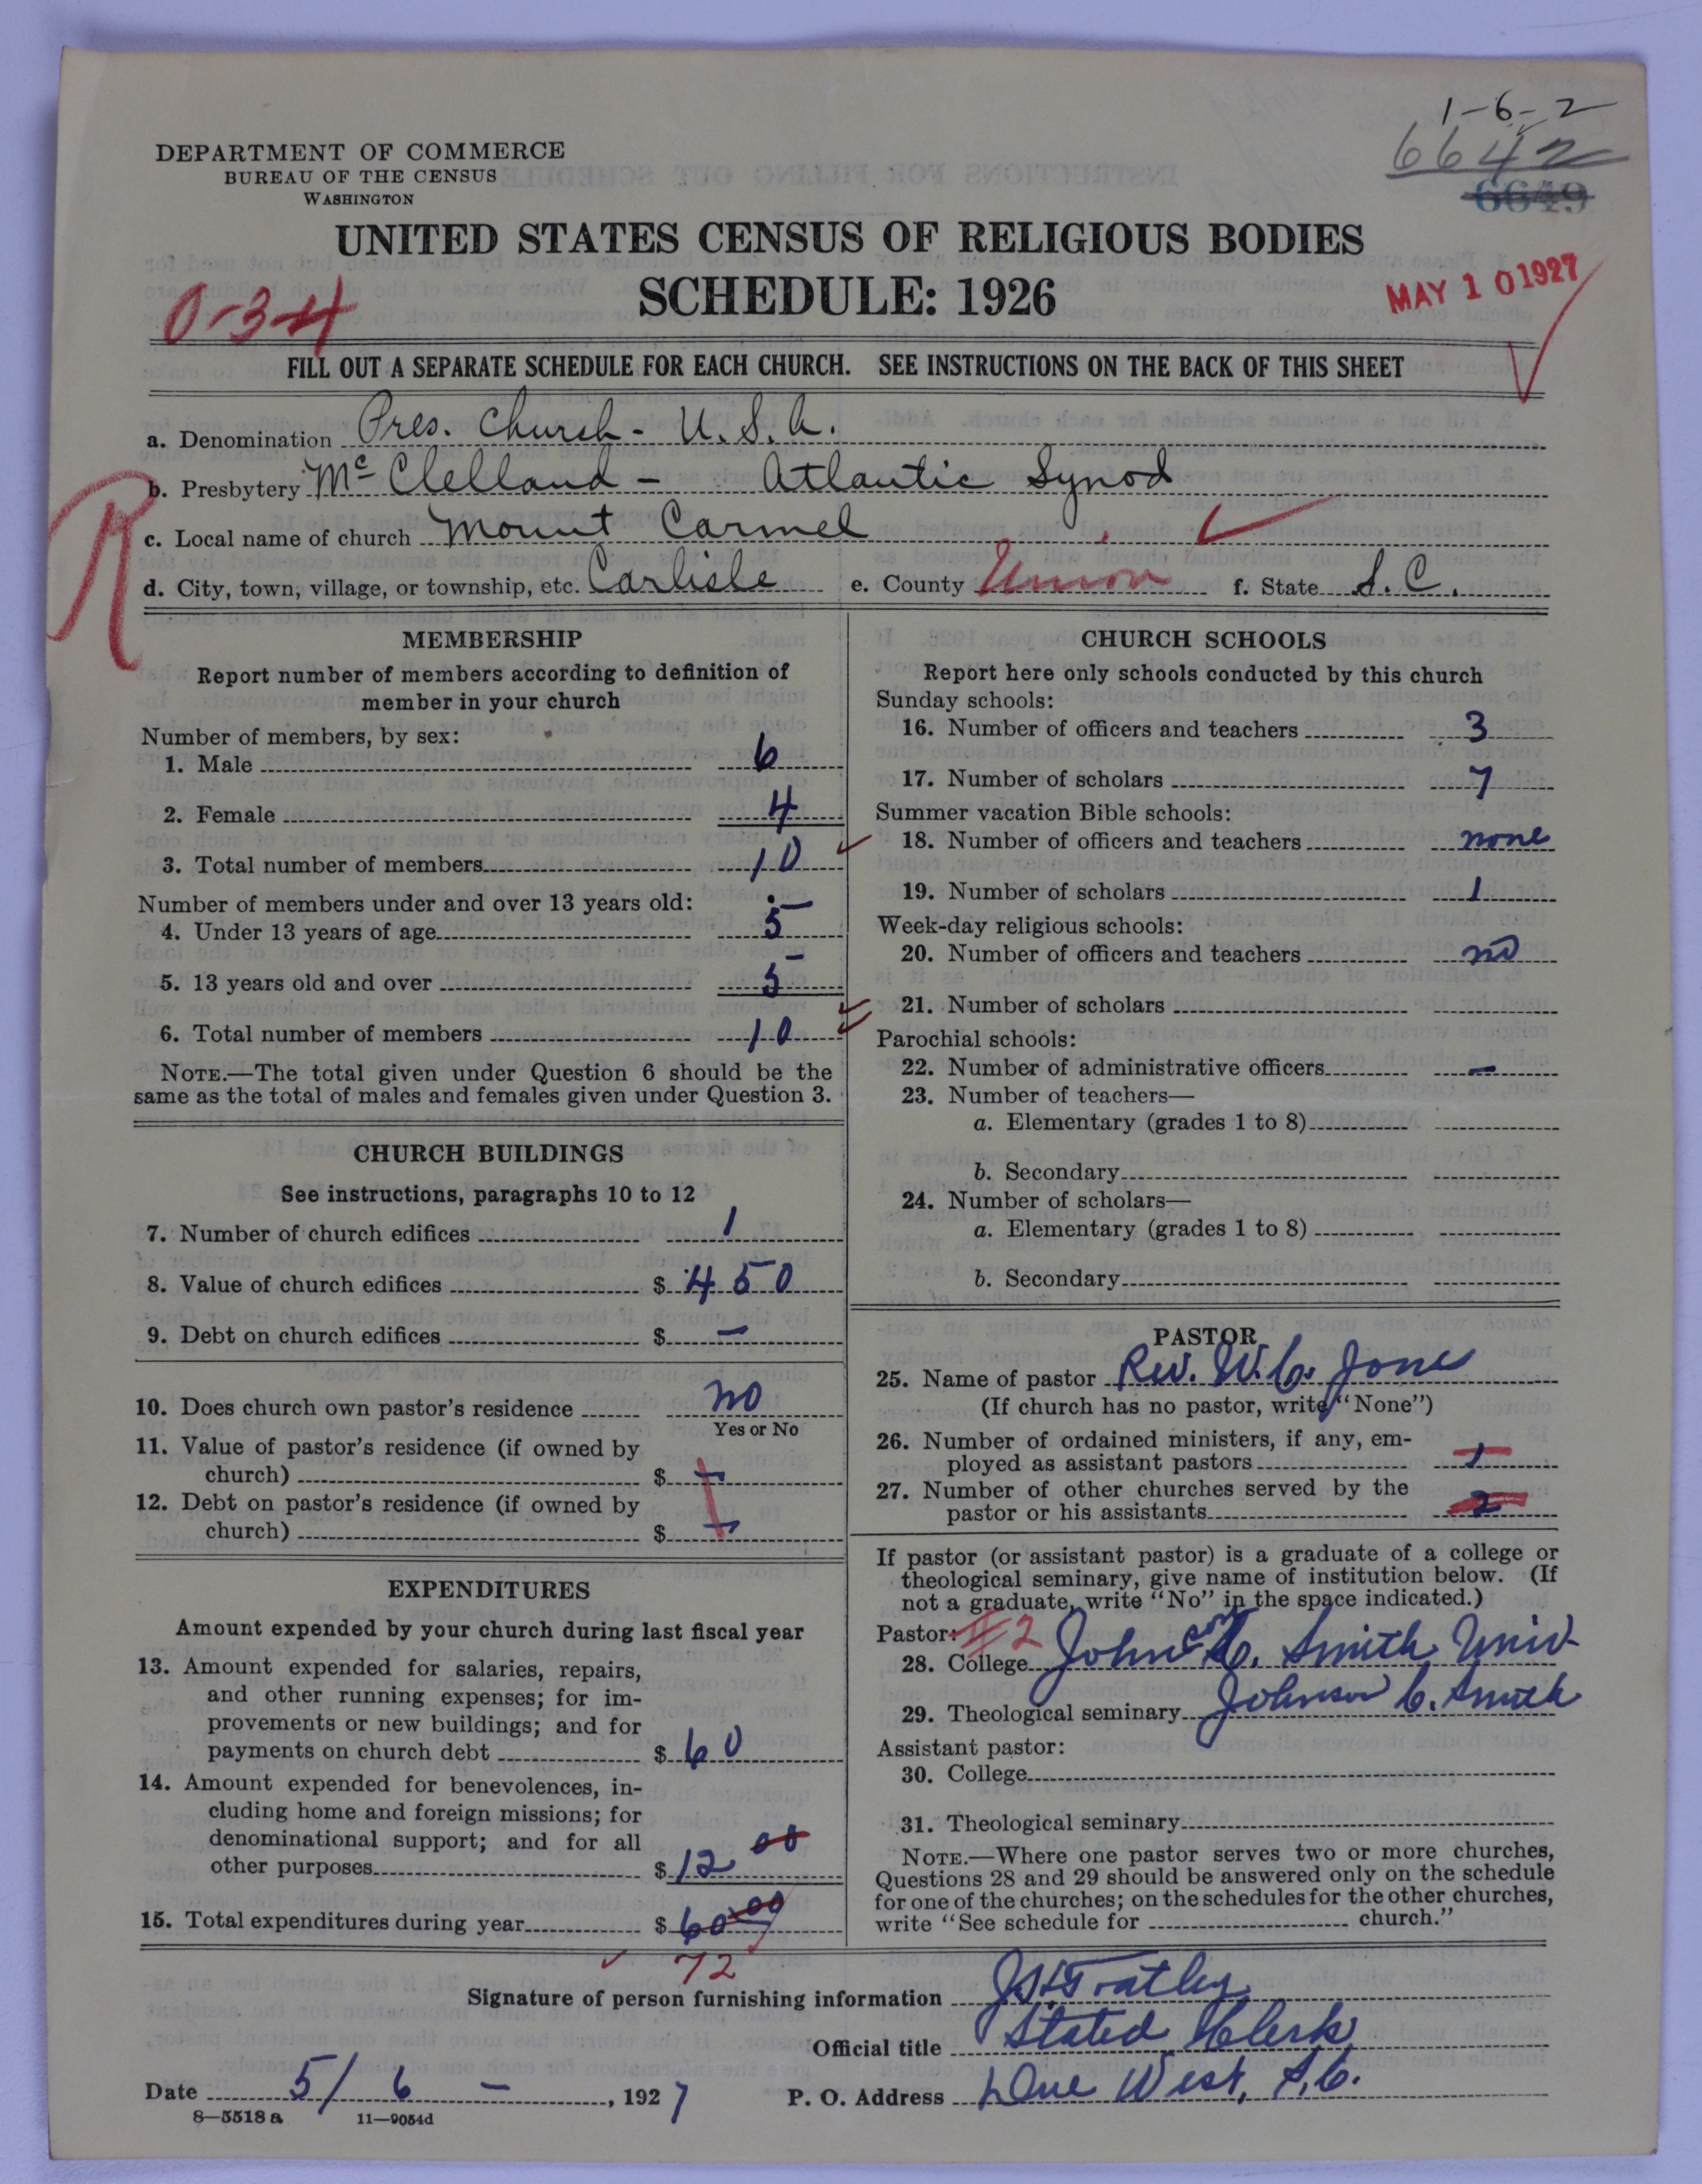 1-6-2
6642
6649
DEPARTMENT OF COMMERCE
BUREAU OF THE CENSUS
WASHINGTON
UNITED STATES CENSUS OF RELIGIOUS BODIES
SCHEDULE: 1926
MAY 10 1927
0-34
FILL OUT A SEPARATE SCHEDULE FOR EACH CHURCH. SEE INSTRUCTIONS ON THE BACK OF THIS SHEET
a. Denomination Pres. Church - U.S.A.
b. Presbytery McClelland - Atlantic Synod
R
c. Local name of church Mount Carmel
d. City, town, village, or township, etc. Carlisle e. County Union f. State S.C.
MEMBERSHIP
Report number of members according to definition of
member in your church
Number of members, by sex:
1. Male 6
2. Female 4
3. Total number of members 10
Number of members under and over 13 years old:
4. Under 13 years of age 5
5. 13 years old and over 5
6. Total number of members 10
NOTE.—The total given under Question 6 should be the
same as the total of males and females given under Question 3.
CHURCH BUILDINGS
See instructions, paragraphs 10 to 12
7. Number of church edifices 1
8. Value of church edifices $ 450
9. Debt on church edifices $ —
10. Does church own pastor's residence no
Yes or No
11. Value of pastor's residence (if owned by
church) $ —
12. Debt on pastor's residence (if owned by
church) $ —
EXPENDITURES
Amount expended by your church during last fiscal year
13. Amount expended for salaries, repairs,
and other running expenses; for im-
provements or new buildings; and for
payments on church debt $ 60
14. Amount expended for benevolences, in-
cluding home and foreign missions; for
denominational support; and for all
other purposes $ 12 00
15. Total expenditures during year $ 60.00
72
CHURCH SCHOOLS
Report here only schools conducted by this church
Sunday schools:
16. Number of officers and teachers 3
17. Number of scholars 7
Summer vacation Bible schools:
18. Number of officers and teachers none
19. Number of scholars 1
Week-day religious schools:
20. Number of officers and teachers no
21. Number of scholars
Parochial schools:
22. Number of administrative officers —
23. Number of teachers—
a. Elementary (grades 1 to 8)
b. Secondary
24. Number of scholars—
a. Elementary (grades 1 to 8)
b. Secondary
PASTOR
25. Name of pastor Rev. W.C. Jones
(If church has no pastor, write "None")
26. Number of ordained ministers, if any, em-
ployed as assistant pastors 1
27. Number of other churches served by the
pastor or his assistants 2
If pastor (or assistant pastor) is a graduate of a college or
theological seminary, give name of institution below. (If
not a graduate, write "No" in the space indicated.)
Pastor: #2
28. College Johnson C. Smith Univ.
29. Theological seminary Johnson C. Smith
Assistant pastor:
30. College
31. Theological seminary
NOTE.—Where one pastor serves two or more churches,
Questions 28 and 29 should be answered only on the schedule
for one of the churches; on the schedules for the other churches,
write "See schedule for church."
Signature of person furnishing information
Official title Stated Clerk
Date 5/6 - , 1927 P. O. Address Due West, S.C.
8—5518 a 11—9054d